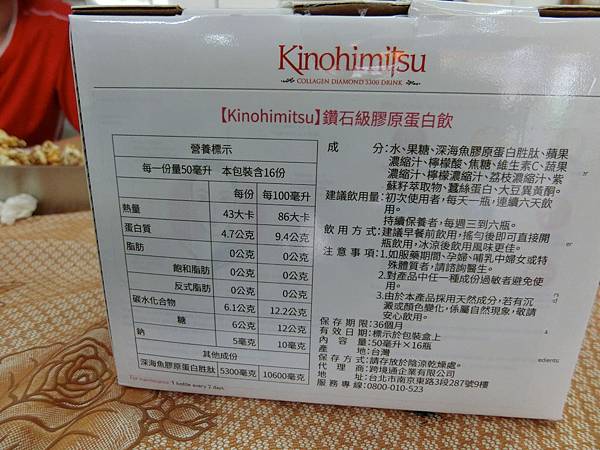 Kinohimitsu
COLLAGEN DIAMOND 5300 DRINK
【Kinohimitsu】鑽石級膠原蛋白飲
營養標示
每一份量50毫升 本包裝含16份
每份 每100毫升
熱量 43大卡 86大卡
蛋白質 4.7公克 9.4公克
脂肪 0公克 0公克
飽和脂肪 0公克 0公克
反式脂肪 0公克 0公克
碳水化合物 6.1公克 12.2公克
糖 6公克 12公克
鈉 5毫克 10毫克
其他成份
深海魚膠原蛋白胜肽 5300毫克 10600毫克
For maintenance: 1 bottle every 2 days
成分:水、果糖、深海魚膠原蛋白胜肽、蘋果
濃縮汁、檸檬酸、焦糖、維生素C、蔬果
濃縮汁、檸檬濃縮汁、荔枝濃縮汁、紫
蘇籽萃取物、蠶絲蛋白、大豆異黃酮。
建議飲用量:初次使用者,每天一瓶,連續六天飲
用。
持續保養者,每週三到六瓶。
飲用方式:建議早餐前飲用,搖勻後即可直接開
瓶飲用,冰涼後飲用風味更佳。
注意事項:1.如服藥期間、孕婦、哺乳中婦女或特
殊體質者,請諮詢醫生。
2.對產品中任一種成份過敏者避免使
用。
3.由於本產品採用天然成分,若有沉
澱或顏色變化,係屬自然現象,敬請
安心飲用。
保存期限:36個月
有效日期:標示於包裝盒上
內容量:50毫升×16瓶
產地:台灣
保存方式:請存放於陰涼乾燥處。
代理商:跨境通企業有限公司
地址:台北市南京東路3段287號9樓
服務專線:0800-010-523
edients